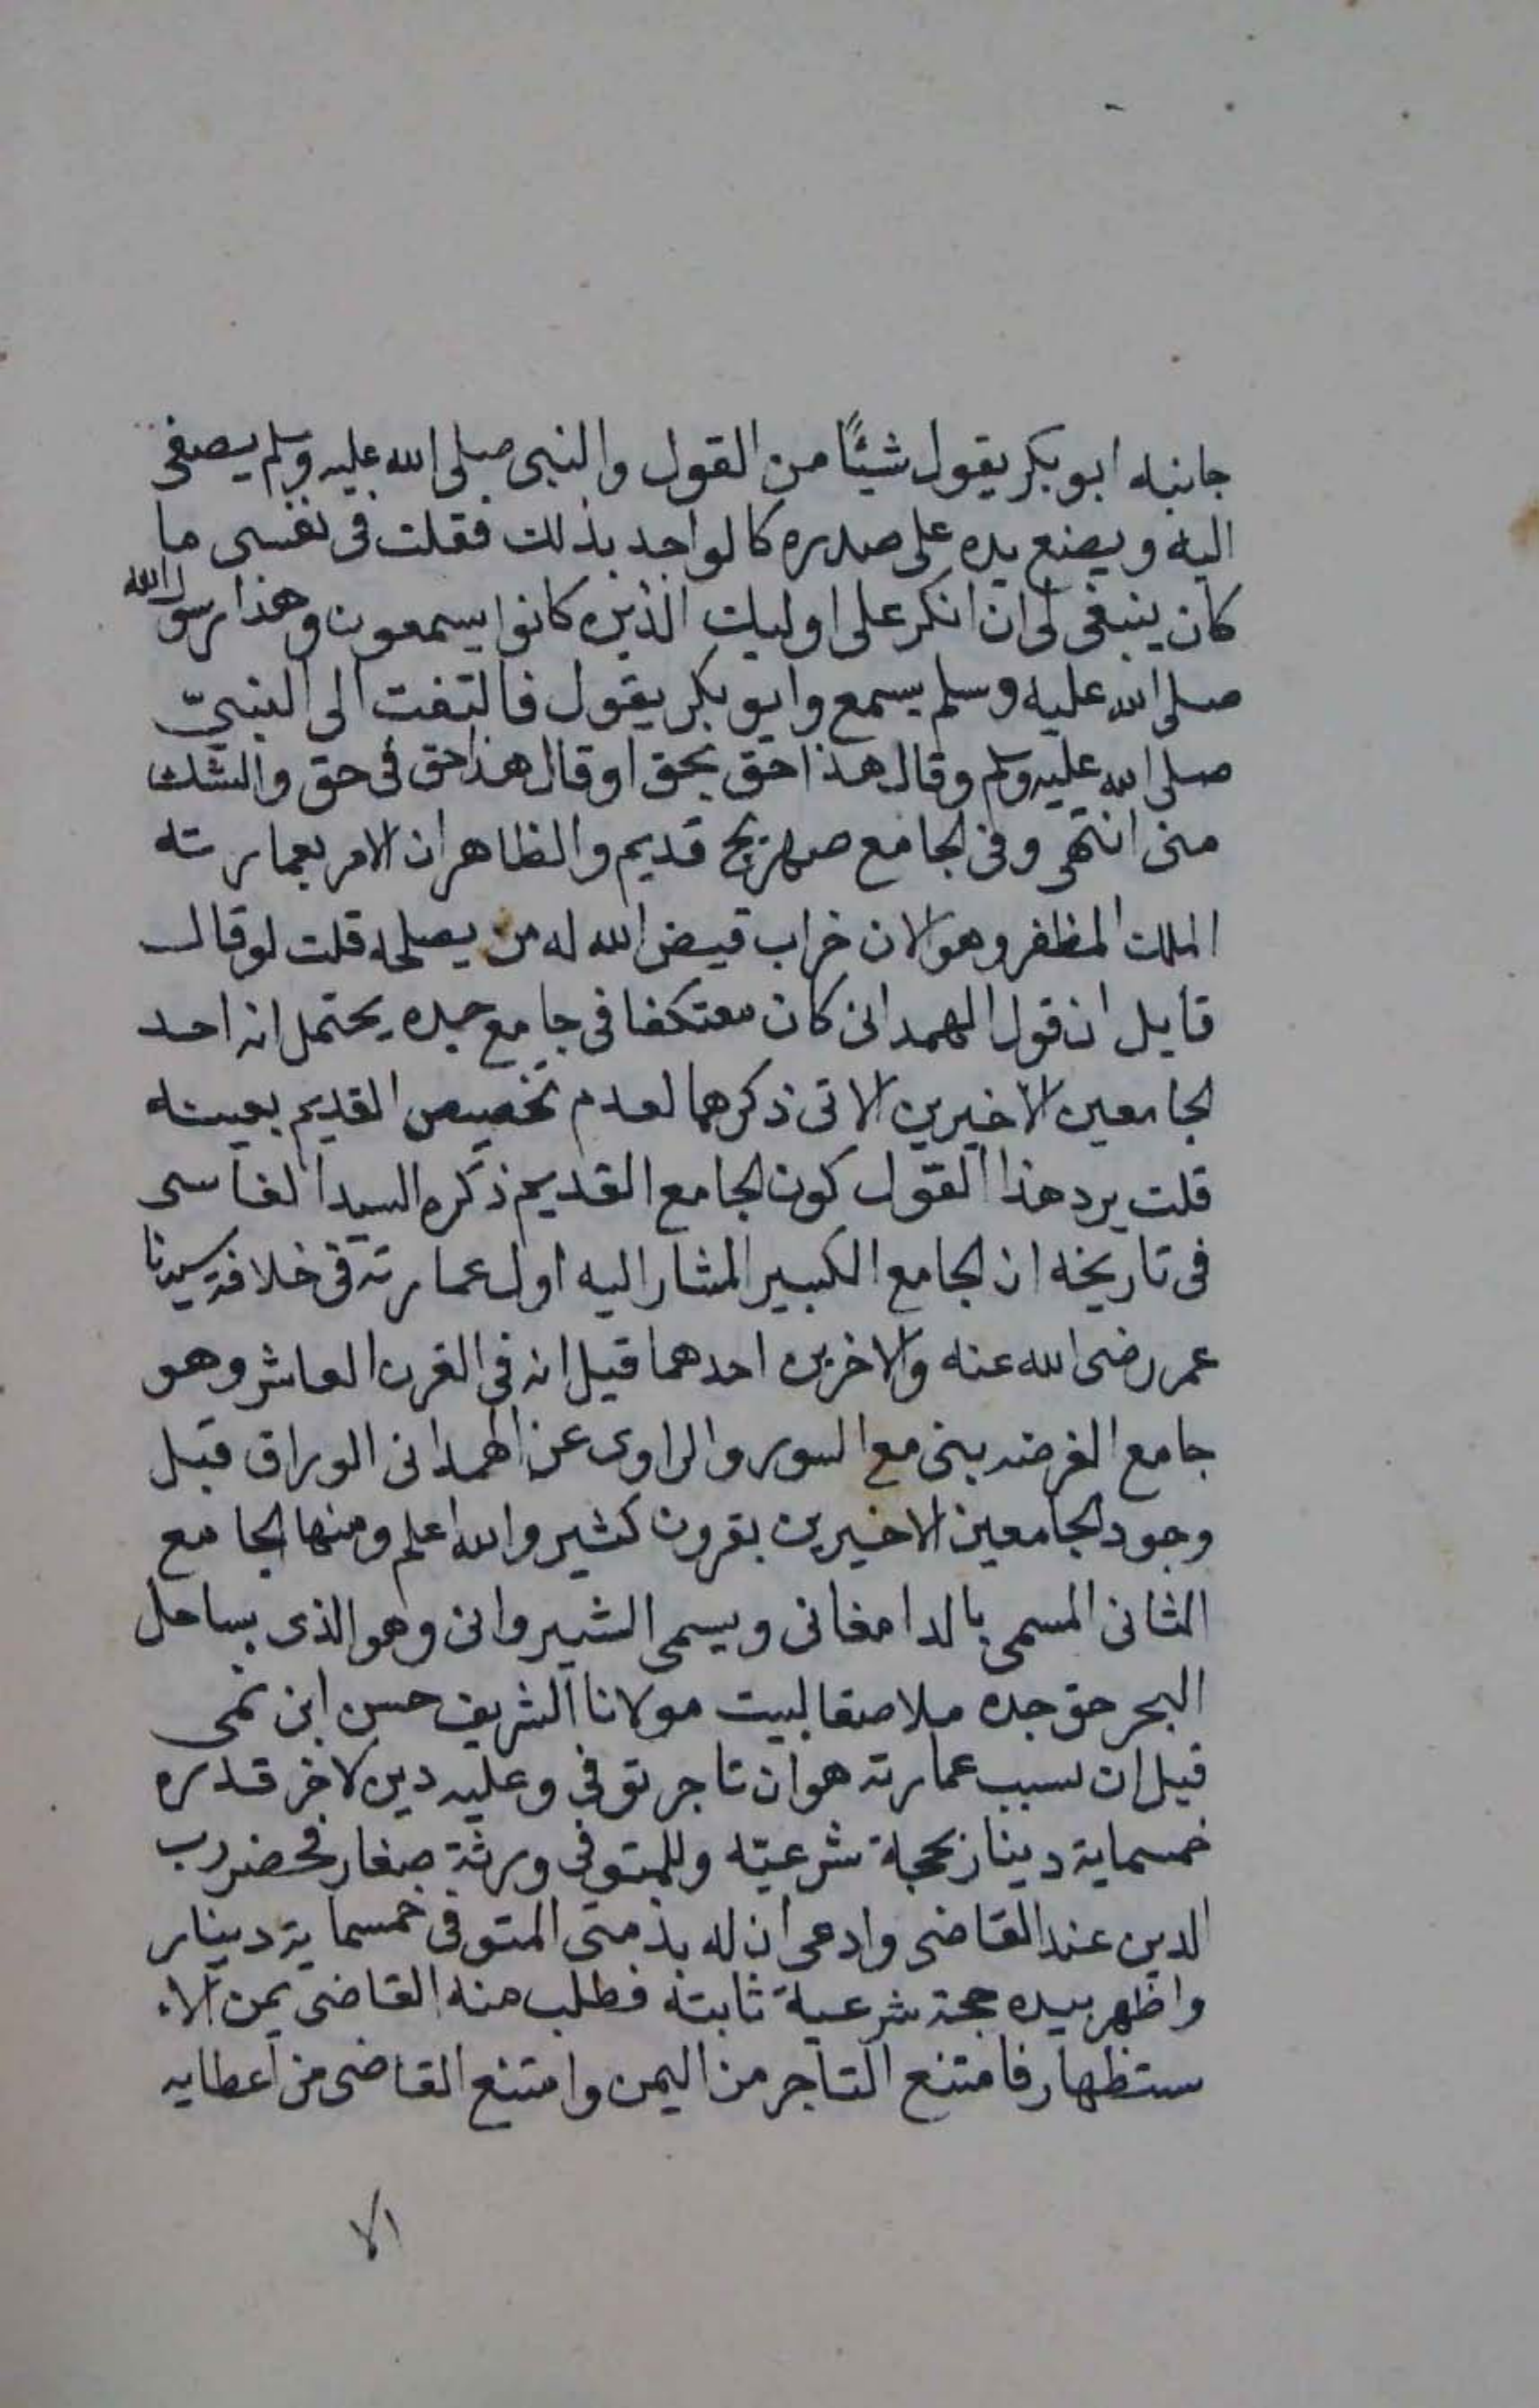 جانبه ابو بكر يقول شيئًا من القول والنبي صلى الله عليه وسلم يصغى
اليه ويضع يده على صدره كالواجد بذلك فقلت فى نفسى ما
كان ينبغى لى ان انكر على اوليك الذين كانوا يسمعون وهذا رسول الله
صلى الله عليه وسلم يسمع وابو بكر يقول فالتفت الى النبىّ
صلى الله عليه وسلم وقال هذا حق بحق او قال هذا حق فى حق والشك
منى انتهى وفى الجامع صهريج قديم والظاهر ان الامر بعمارته
الملك المظفر وهو الان خراب قيض الله له من يصلحه قلت لو قال
قايل ان قول الهمدانى كان معتكفا فى جامع جده يحتمل انه احد
الجامعين الاخيرين الاتى ذكرهما لعدم تخصيص القديم بعينه
قلت يرد هذا القول كون الجامع القديم ذكره السيد الفاسى
فى تاريخه ان الجامع الكبير المشار اليه اول عمارته فى خلافة سيدنا
عمر رضى الله عنه والاخرين احدهما قيل انه فى القرن العاشر وهو
جامع الفرضه بنى مع السور والراوى عن الهمدانى الوراق قبل
وجود الجامعين الاخيرين بقرون كثير والله اعلم ومنها الجامع
الثانى المسمى بالدامغانى ويسمى الشيروانى وهو الذى بساحل
البحر حق جده ملاصقا لبيت مولانا الشريف حسن ابن نمى
قيل ان سبب عمارته هو ان تاجر توفى وعليه دين لاخر قدره
خمسماية دينار بحجة شرعيّه وللمتوفى ورثة صغار فحضر رب
الدين عند القاضى وادعى ان له بذمتى المتوفى خمسماية دينار
واظهر بيده حجة شرعية ثابتة فطلب منه القاضى يمن الا
ستظهار فامتنع التاجر من اليمن وامتنع القاضى من اعطايه
الا